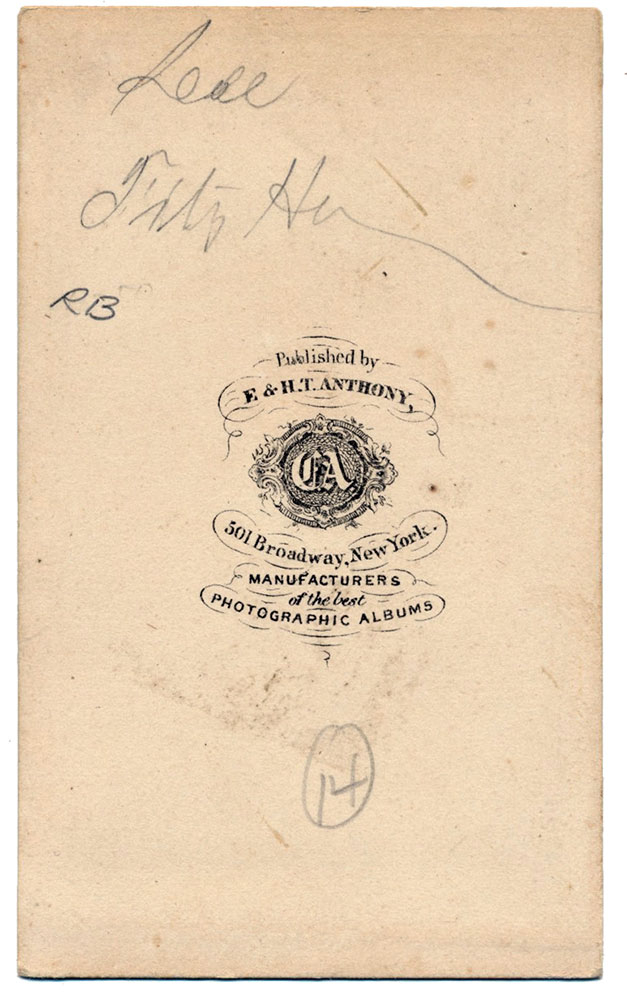 Fitz
RB
Published by
E & H.T. ANTHONY,
CA
501 Broadway, New York.
MANUFACTURERS
of the best
PHOTOGRAPHIC ALBUMS
14